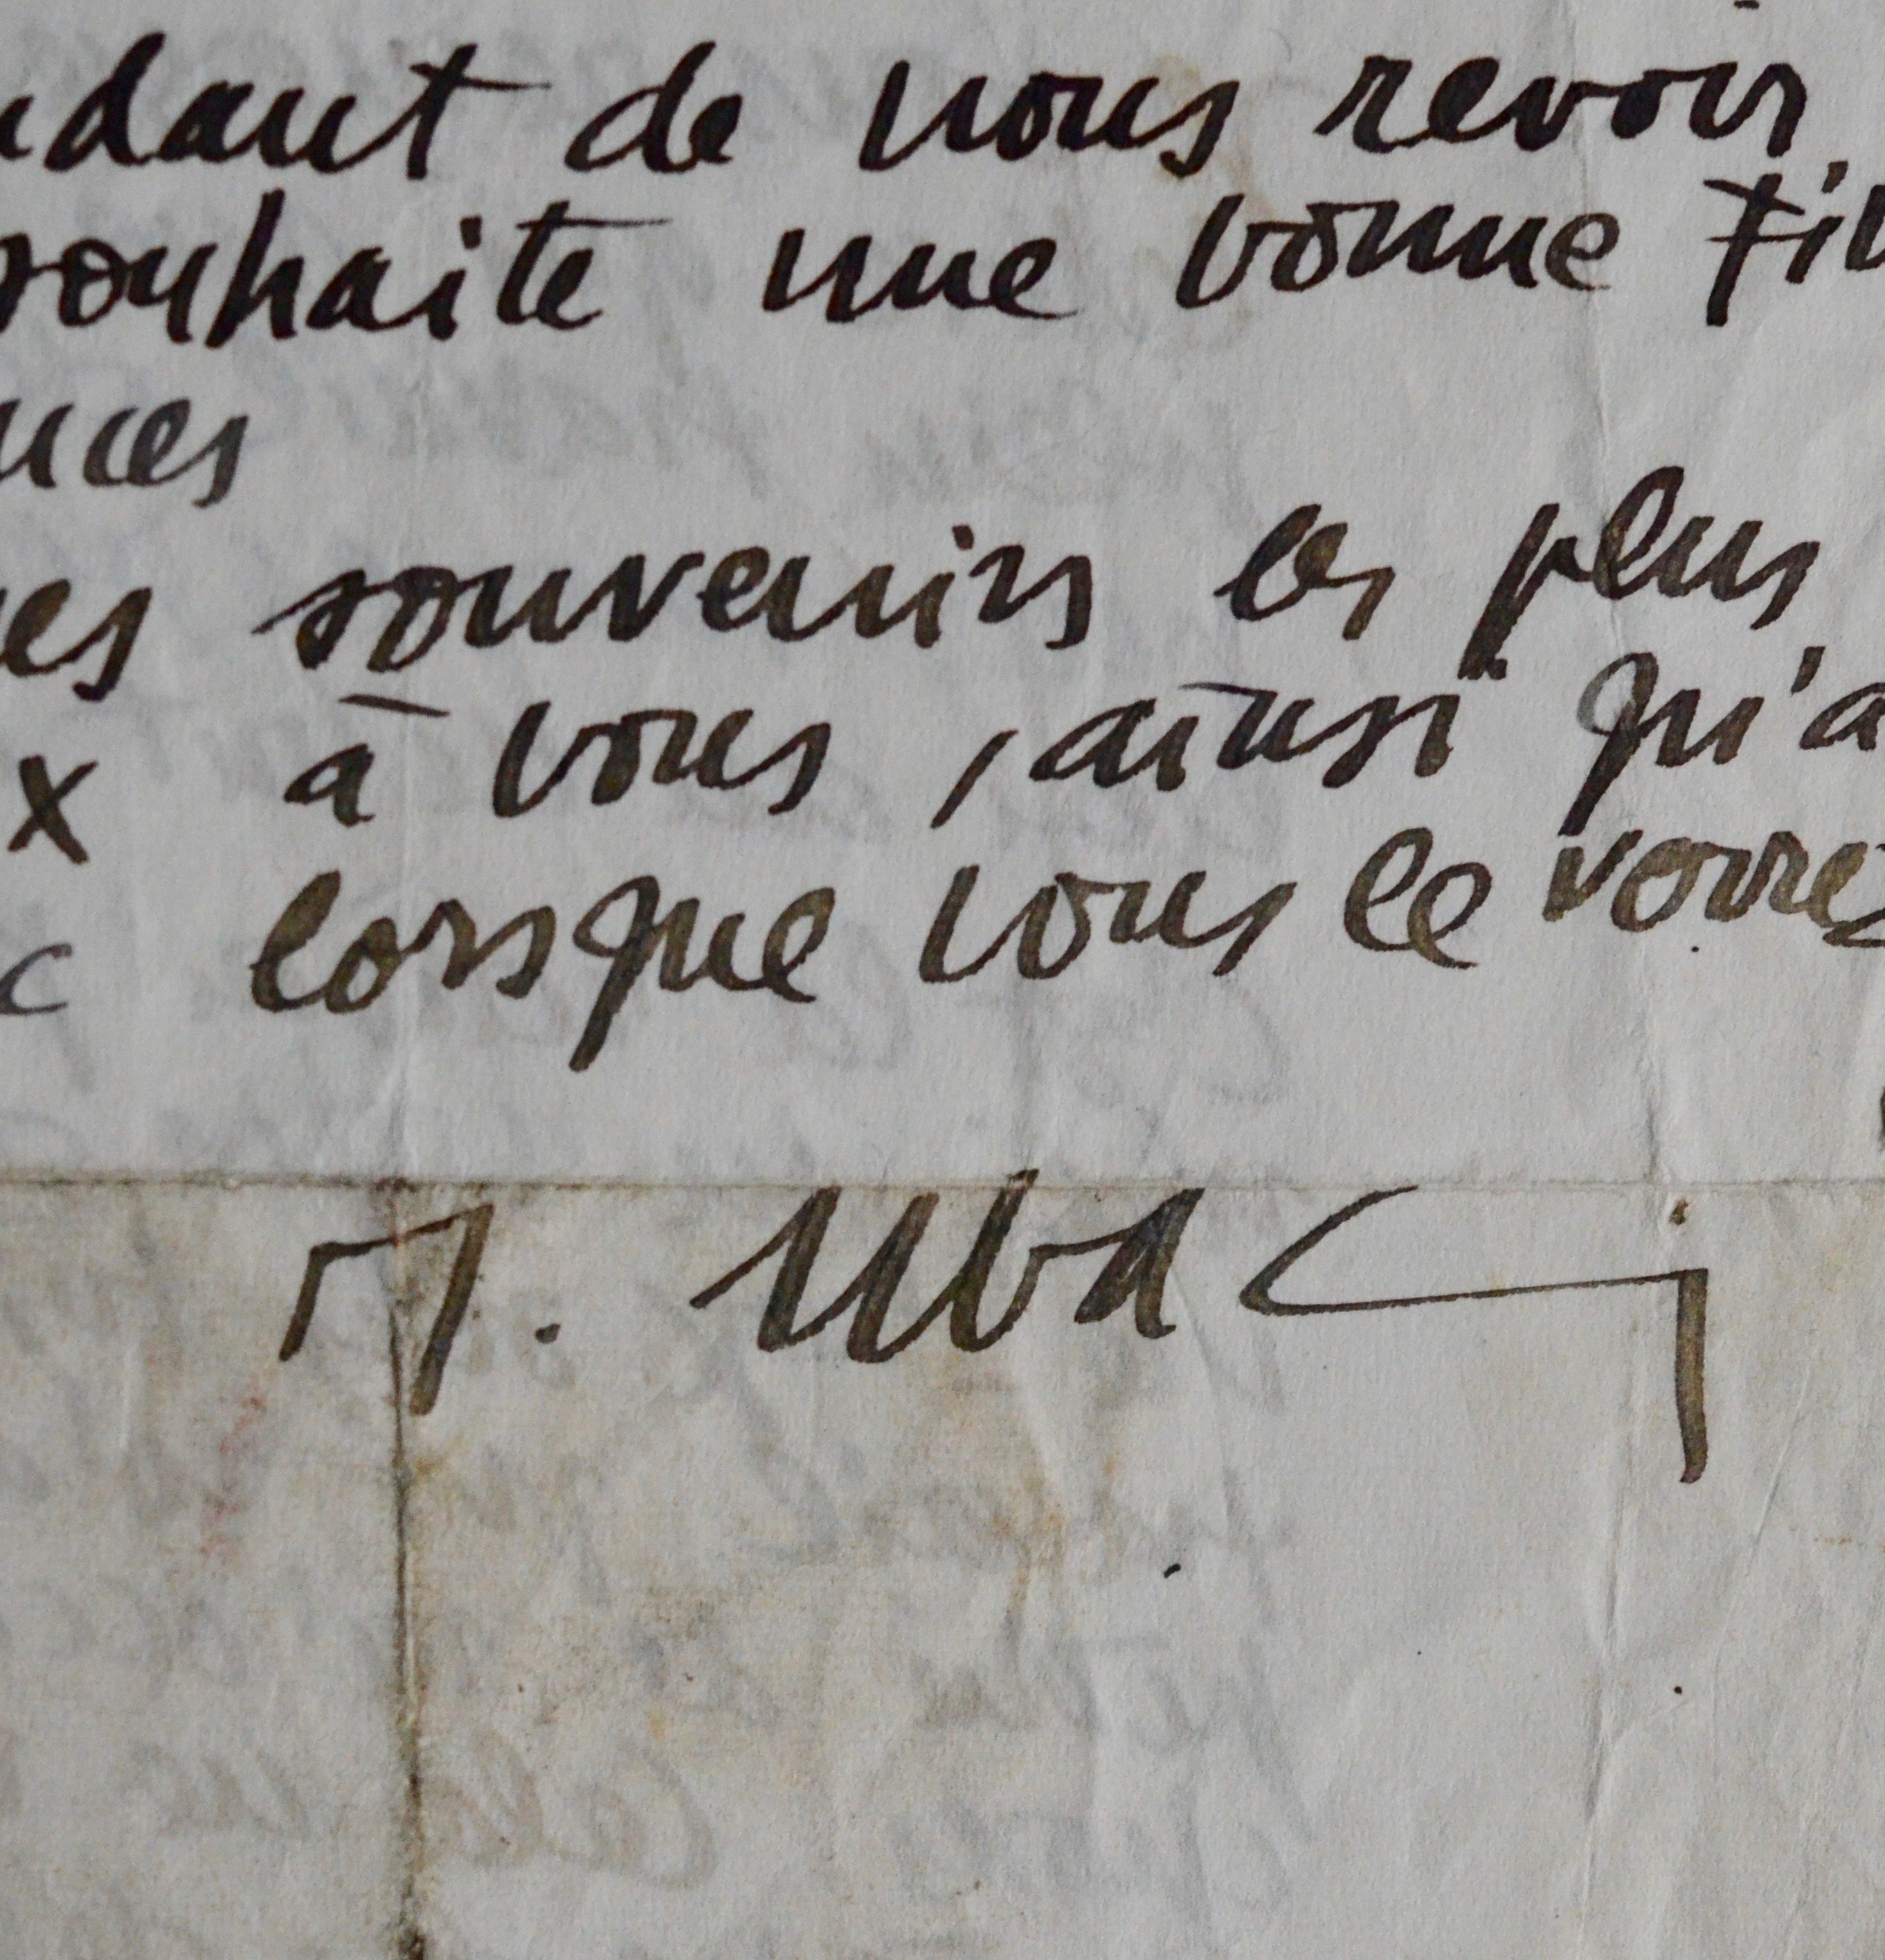 ndant de nous revoir
souhaite une bonne Fin
nces
es souvenirs les plus
x à vous, ainsi qu'a
c lorsque vous le verrez
M. Ubac